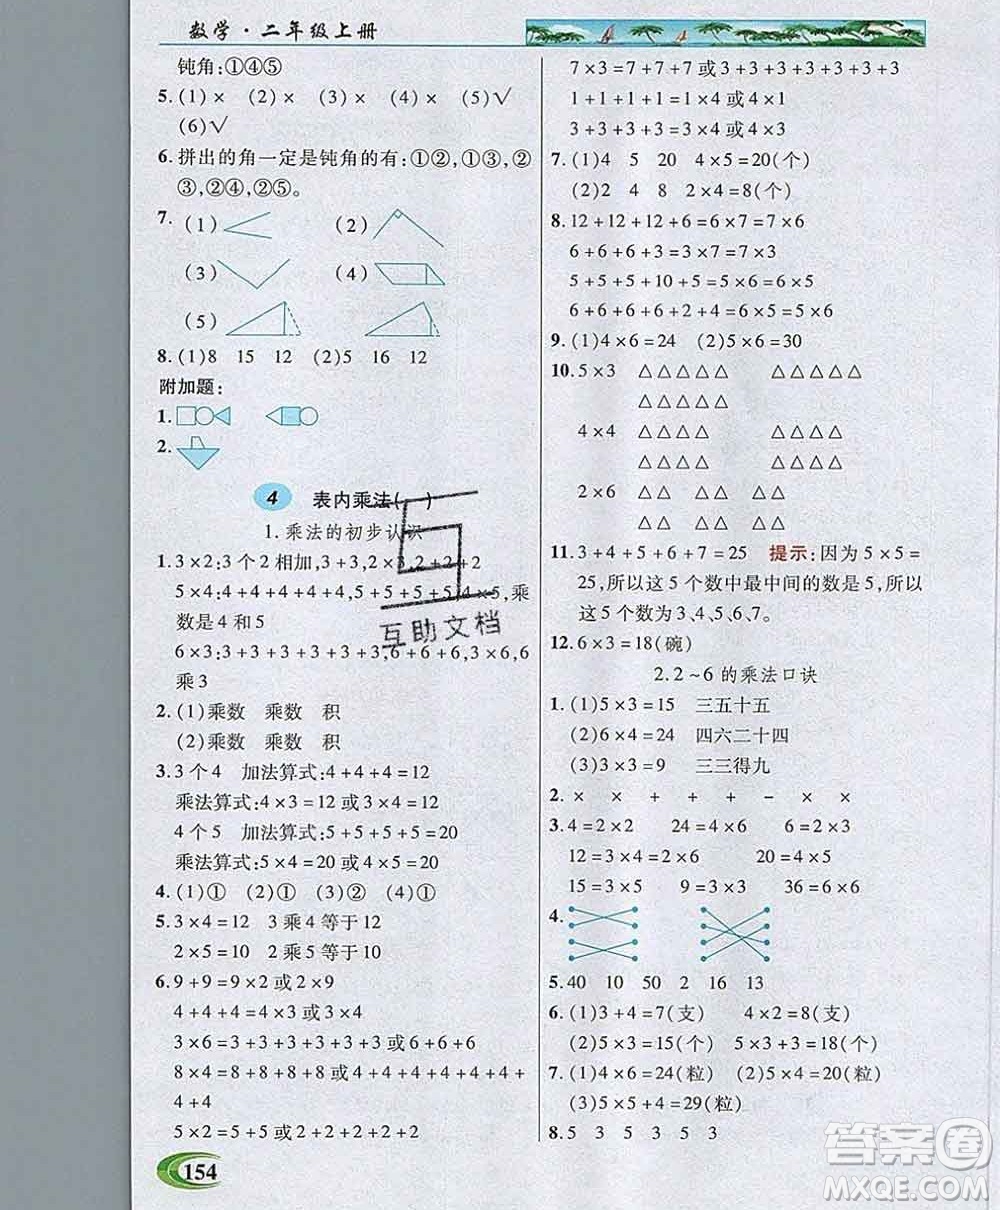 数学·二年级上册
钝角:①④⑤
5.(1)× (2)× (3)× (4)× (5)√
(6)√
6.拼出的角一定是钝角的有:①②,①③,②
③,②④,②⑤。
7.(1) (2)
(3) (4)
(5)
8.(1)8 15 12 (2)5 16 12
附加题:
1.
2.
4 表内乘法( )
1.乘法的初步认识
1.3×2:3个2相加,3+3,2×3,2+2+2
5×4:4+4+4+4+4,5+5+5+5,4×5,乘
数是4和5
6×3:3+3+3+3+3+3,6+6+6,3×6,6
乘3
2.(1)乘数 乘数 积
(2)乘数 乘数 积
3.3个4 加法算式:4+4+4=12
乘法算式:4×3=12或3×4=12
4个5 加法算式:5+5+5+5=20
乘法算式:5×4=20或4×5=20
4.(1)① (2)① (3)② (4)①
5.3×4=12 3乘4等于12
2×5=10 2乘5等于10
6.9+9=9×2或2×9
4+4+4=4×3或3×4
3×6=3+3+3+3+3+3或6+6+6
8×4=8+8+8+8或4+4+4+4+4+4+
4+4
5×2=5+5或2+2+2+2+2
154
7×3=7+7+7或3+3+3+3+3+3+3
1+1+1+1=1×4或4×1
3+3+3+3=3×4或4×3
7.(1)4 5 20 4×5=20(个)
(2)2 4 8 2×4=8(个)
8.12+12+12+6=6×7=7×6
6+6+6+3=3×7=7×3
5+5+5+10+5=5×6=6×5
6+6+6+6+2+4=6×5=5×6
9.(1)4×6=24 (2)5×6=30
10.5×3 △△△△△ △△△△△
△△△△△
4×4 △△△△ △△△△
△△△△ △△△△
2×6 △△△△△△
△△△△△△
11.3+4+5+6+7=25 提示:因为5×5=
25,所以这5个数中最中间的数是5,所以
这5个数为3、4、5、6、7。
12.6×3=18(碗)
2.2~6的乘法口诀
1.(1)5×3=15 三五十五
(2)6×4=24 四六二十四
(3)3×3=9 三三得九
2.× × + + + - × ×
3.4=2×2 24=4×6 6=2×3
12=3×4 20=4×5
15=3×5 9=3×3 36=6×6
4.
5.40 10 50 2 16 13
6.(1)3+4=7(支) 4×2=8(支)
(2)5×3=15(个) 5×3+3=18(个)
7.(1)4×6=24(粒) (2)5×4=20(粒)
(3)5×5+4=29(粒)
8.5 3 5 3 5 3
互助文档
答案圈
MXQE.COM